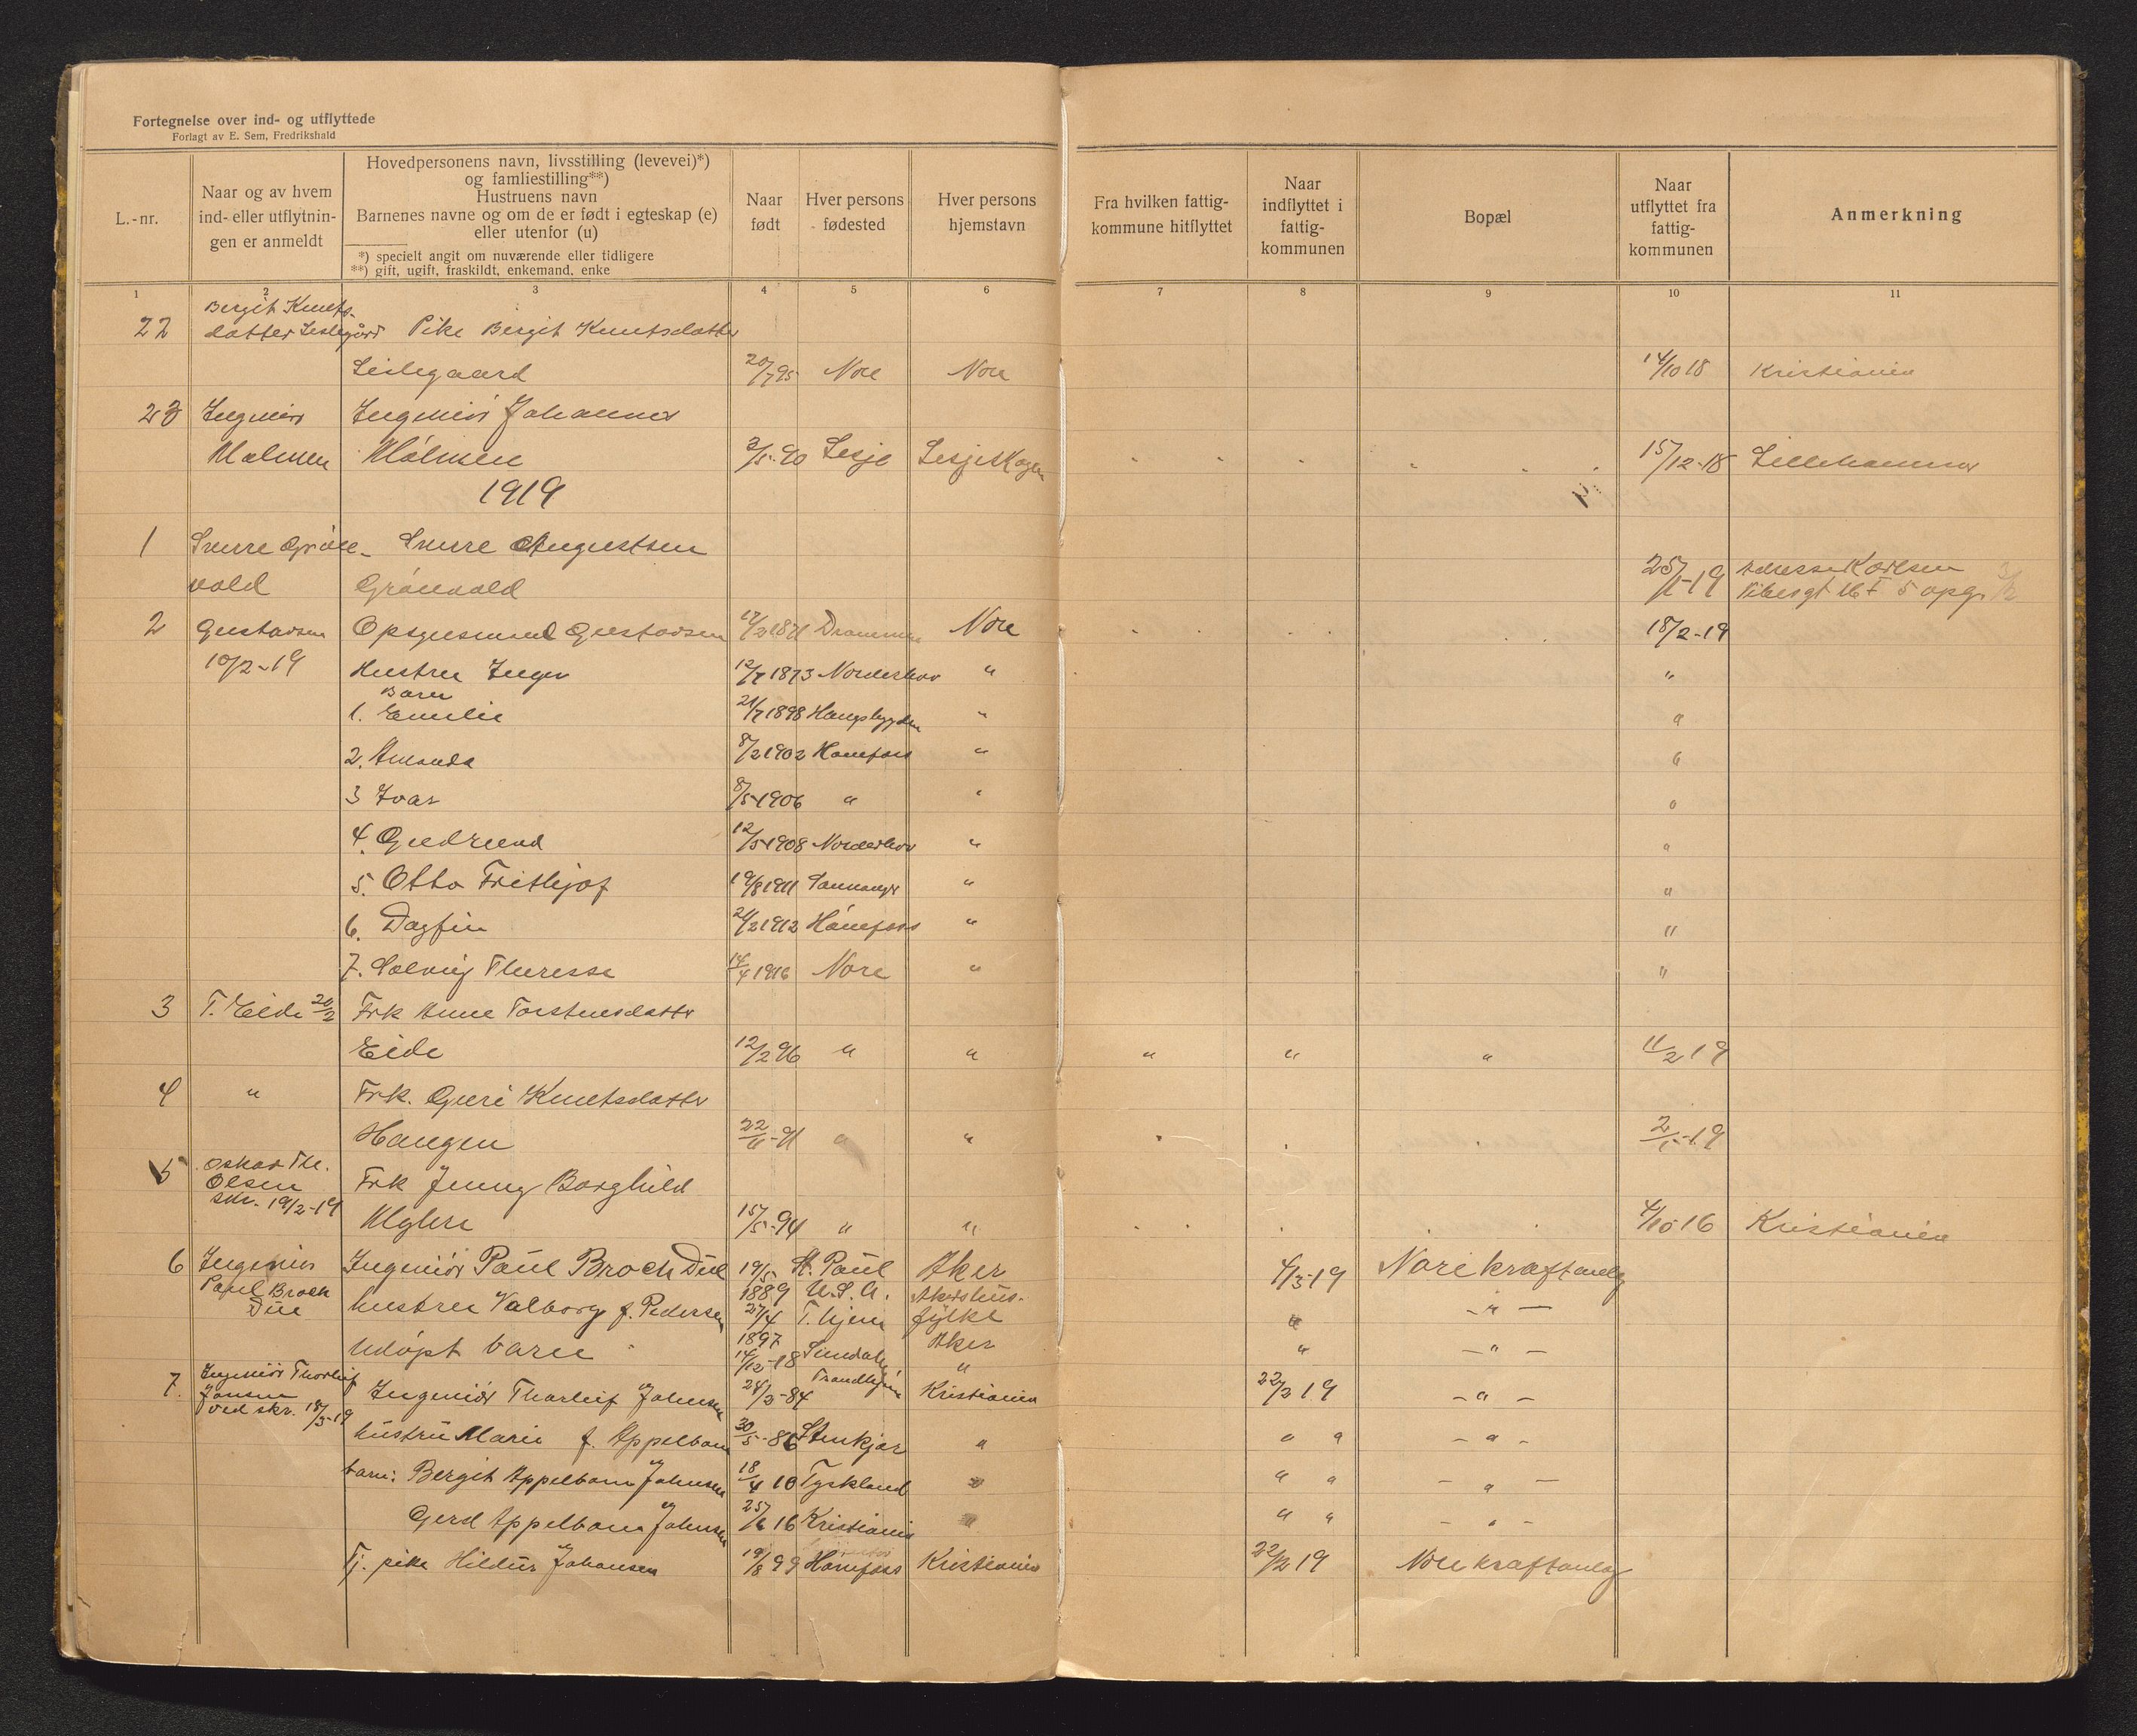 Fortegnelse over ind- og utflyttede
Forlagt av E. Sem, Fredrikshald
L.-nr.
Naar og av hvem ind- eller utflytnin- gen er anmeldt
Hovedpersonens navn, livsstilling (levevei)*)
og famliestilling**)
Hustruens navn
Barnenes navne og om de er født i egteskap (e)
eller utenfor (u)
*) specielt angit om nuværende eller tidligere
**) gift, ugift, fraskildt, enkemand, enke
Naar født
Hver persons fødested
Hver persons hjemstavn
Fra hvilken fattig- kommune hitflyttet
Naar indflyttet i fattig- kommunen
Bopæl
Naar utflyttet fra fattig- kommunen
Anmerkning
1 2 3 4 5 6 7 8 9 10 11
Bergit Knuts-
22 datter Pike Bergit Knutsdatter
20/7 95 Nore Nore 14/10 18 Kristiania
23 Ingeniør Ingeniør Johannes
Mølmen Mølmen 3/5-90 Lesje 15/12-18 Lillehammer
1919
1 Sverre Grøne- Sverre Augustsen
vold Grønvold 25/1-19 Karlsen
5 opg.
2 Gustavsen Gustavsen 1871 Drammen Nore 18/2-19
10/2-19 Hustru Inger 12/7 1873 Norderhov "
Barn
1. Emilie 21/7 1898 "
2. Amanda 8/2 1902 Hønefoss "
3 Ivar 8/5-1906 " "
4. Gudrund 12/5 1908 Norderhov "
5. Otto Frithjof 19/8 1911 "
6. Dagfin 21/2 1912 Hønefoss "
7. Solveig Theresse 14/4 1916 Nore "
3 T. Eide 20/2 Frk Anne Torstensdatter
Eide 12/2 96 " " " " " 11/2 19
4 " Frk. Guri Knutsdatter
Haugen 22/11-91 " " 2/1-19
5 Oskar Th.
Olsen Frk Jenny Borghild
skr. 19/2-19
15/5-94 " " 4/10-16 Kristiania
6 Ingeniør Ingeniør Paul Broch Due 19/5 St. Paul Aker 4/3-19 Norekraftanlæg
Paul Broch 1889 U.S.A. Akershus-
Due hustru Valborg f. Pedersen 27/4 T.hjem fylke " - " -
1897
udøpt barn 14/12-18 Aker " - " -
7. Ingeniør Thorleif Trondhjem "
Jonsen Ingeniør Thorleif Johnsen 24/2-84 Kristiania 22/2 19 - " -
ved skr. 18/3-19
hustru Marie f. Appelbom 30/5-86 Stenkjær " " " - " -
barn: Bergit Appelbom Johnsen 18/4 10 Tyskland " " " - " -
Gerd Appelbom Johnsen 25/6 16 Kristiania " " " - " -
Tj. pike Hildur Johansen 19/8 99 Hønefoss Kristiania 22/2 19 Nore kraftanlæg